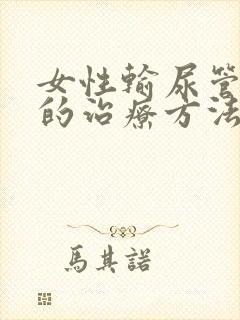 女性輸尿管
的治療方法
馬其諾